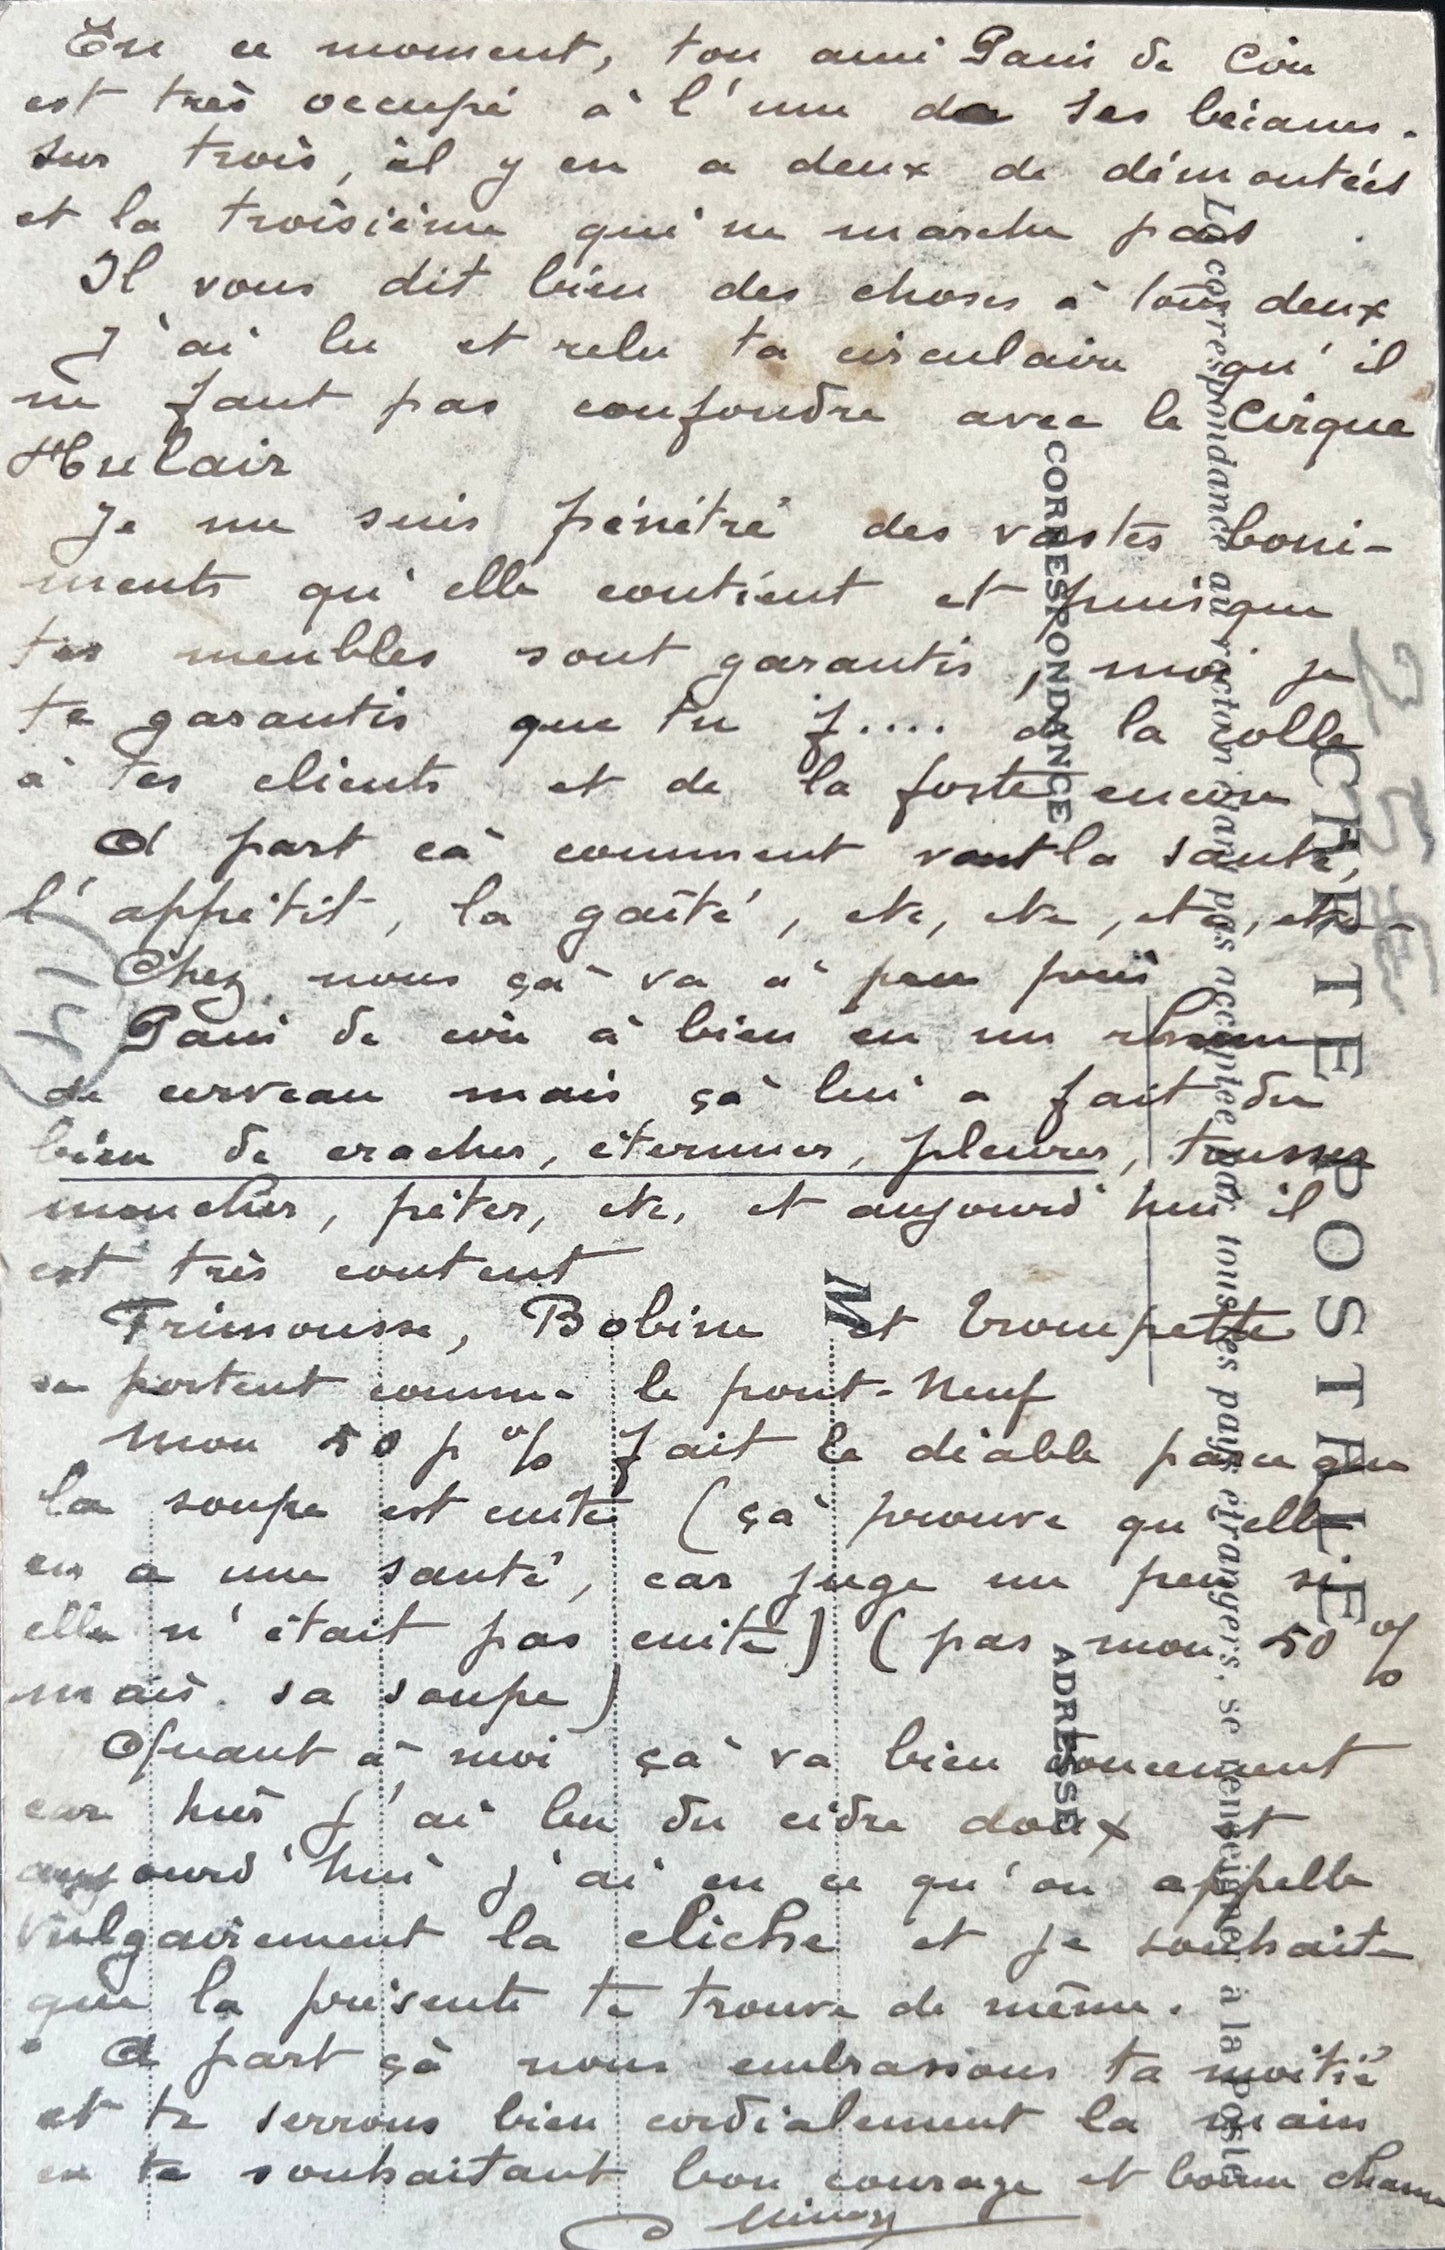 En ce moment, ton ami Pani de Ciu
est très occupé à l'une de ses bécanes.
Sur trois, il y en a deux de démontées
et la troisième qui ne marche pas
Il vous dit bien des choses à tous deux
J'ai lu et relu ta circulaire qu'il
ne faut pas confondre avec le Cirque
Hulair
Je me suis pénétré des vastes boni-
ments qu'elle contient et puisque
tes meubles sont garantis, moi je
te garantis que tu f.... de la colle
à tes clients et de la forte encore
A part çà comment vont la santé,
l'appétit, la gaîté, etc, etc, etc, etc..
Chez nous çà va à peu près
Pani de à bien eu un rhume
de cerveau mais çà lui a fait du
bien de cracher, éternuer, pleurer, tousser
moucher, péter, etc, et aujourd'hui il
est très content
Frimousse, Bobine et Trompette
se portent comme le pont-Neuf
Mon 50 p % fait le diable parce que
la soupe est cuite (çà prouve qu'elle
en a une santé, car juge un peu si
elle n'était pas cuite) (pas mon 50 %
mais sa soupe)
Quant à moi çà va bien doucement
car hier j'ai bu du cidre doux et
aujourd'hui j'ai eu ce qu'on appelle
vulgairement la cliche et je souhaite
que la présente te trouve de même.
A part çà nous embrassons ta moitié
et te serrons bien cordialement la main
en te souhaitant bon courage et bonne chance
CARTE POSTALE
La correspondance au recto n'étant pas acceptée par tous les pays étrangers, se renseigner à la Poste
CORRESPONDANCE
ADRESSE
M